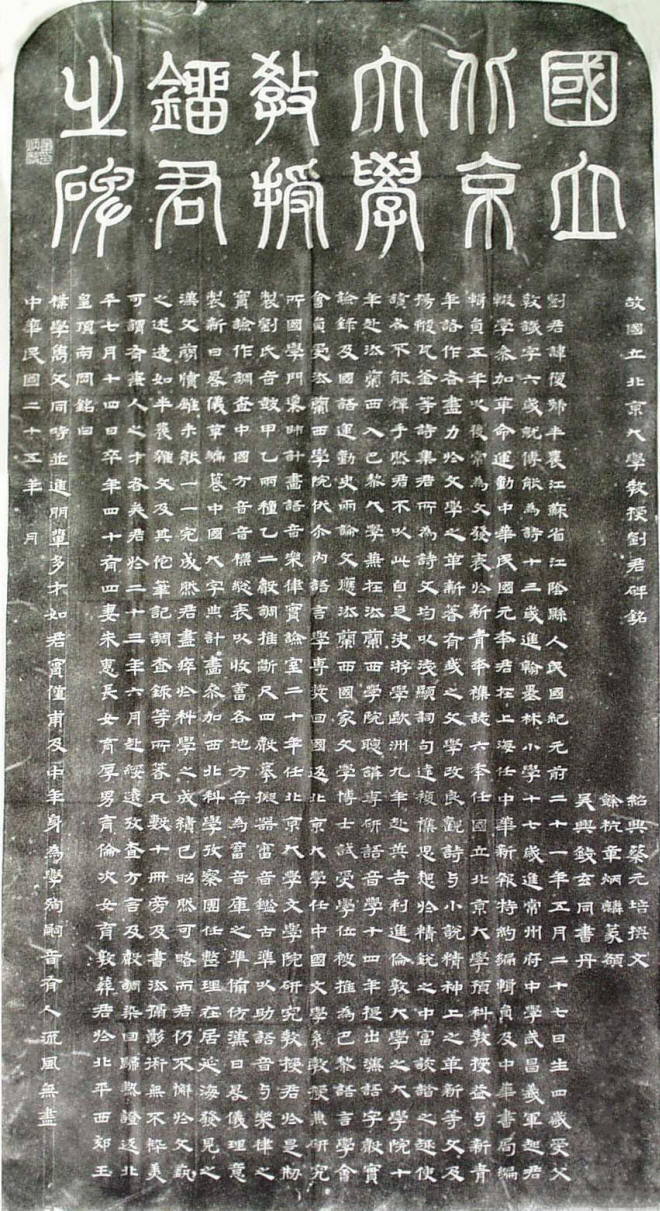 國立
北京
大學
教授
鐂君
之碑
故國立北京大學教授劉君碑銘
紹興蔡元培撰文
餘杭章炳麟篆額
吳興錢玄同書丹
劉君諱復號半農江蘇省江陰縣人民國紀元前二十一年五月二十七日生四歲受父
教識字六歲就傅能為詩十三歲進翰墨林小學十七歲進常州府中學武昌義軍起君
輟學參加革命運動中華民國元年君在上海任中華新報特約編輯員及中華書局編
輯員五年以後常為文發表於新青年雜誌六年任國立北京大學預科教授益與新青
年諸作者盡力於文學之革新著有我之文學改良觀詩與小說精神上之革新等文及
揚鞭瓦釜等詩集君所為詩文均以淺顯詞句達複雜思想於精銳之中富詼諧之趣使
讀者不能釋手然君不以此自足決游學歐洲九年赴英吉利進倫敦大學之大學院十
年赴法蘭西入巴黎大學兼在法蘭西學院聽講專研語音學十四年提出漢語字聲實
驗錄及國語運動史兩論文應法蘭西國家文學博士試受學位被推為巴黎語言學會
會員受法蘭西學院伏爾內語言學專獎回國返北京大學任中國文學系教授兼研究
所國學門導師計畫語音樂律實驗室二十年任北京大學文學院研究教授君於是創
製劉氏音鼓甲乙兩種乙二聲調推斷尺四聲摹擬器審音鑑古準以助語音與樂律之
實驗作調查中國方音音標總表以收蓄各地方音為蓄音庫之準備仿漢日晷儀理意
製新日晷儀草編纂中國大字典計畫參加西北科學考察團任整理在居延海發見之
漢文簡牘雖未能一一完成然君盡瘁於科學之成績已昭然可睹而君仍不懈於文藝
之述造如半農雜文及其他筆記調查錄等所著凡數十冊旁及書法攝影術無不粹美
可謂有兼人之才者矣君於二十三年六月赴綏遠考查方言及聲調染回歸熱證返北
平七月十四日卒年四十有四妻朱惠長女育厚男育倫次女育敦葬君於北平西郊玉
皇頂南岡銘曰
樸學儁文同時並進朋輩多才如君實僅甫及中年身為學殉嗣音有人流風無盡
中華民國二十五年 月